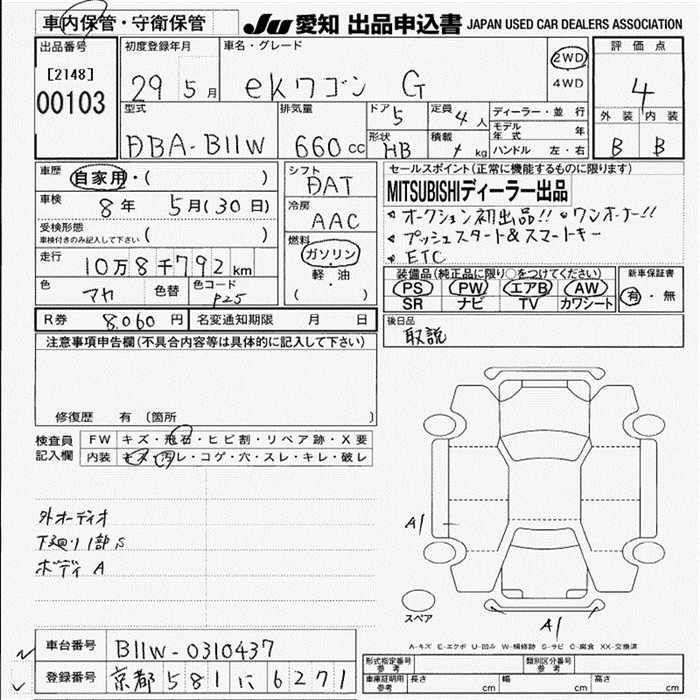 車内保管・守衛保管
JU 愛知 出品申込書 JAPAN USED CAR DEALERS ASSOCIATION
出品番号
[2148]
00103
初度登録年月
29 5 月
車名・グレード
ekワゴン G
2WD
4WD
評価点
4
外装 内装
B B
型式
DBA-B11W
排気量
660 cc
ドア
5
定員
4 人
形状
HB
積載
kg
ディーラー・並行
モデル年式 年
ハンドル 左・右
車歴
自家用・( )
車検
8年 5月(30日)
受検形態
車検付きのみ記入して下さい ( )
走行
10万8千792 km
色
マヤ
色替
色コード
P25
シフト
DAT
冷房
AAC
燃料
ガソリン
軽・油
( )
セールスポイント(正常に機能するものに限ります)
MITSUBISHIディーラー出品
オークション初出品!! ワンオーナー!!
プッシュスタート&スマートキー
ETC
装備品(純正品に限り○をつけてください)
PS PW エアB AW
SR ナビ TV カワシート
新車保証書
有・無
R券 8,060 円 名変通知期限 月 日
後日品
取説
注意事項申告欄(不具合内容等は具体的に記入して下さい)
修復歴 有 〔箇所 〕
検査員
記入欄
FW キズ・飛石・ヒビ割・リペア跡・X要
内装 キズ・汚レ・コゲ・穴・スレ・キレ・破レ
外オーディオ
下廻り1部S
ボディA
A1
スペア
A1
A-キズ E-エクボ U-凹み W-補修跡 S-サビ C-腐食 XX-交換済
車台番号 B11W-0310437
登録番号 京都581に6271
形式指定番号 参考 類別区分番号 参考
車庫証明用 参考 長さ cm 幅 cm 高さ cm